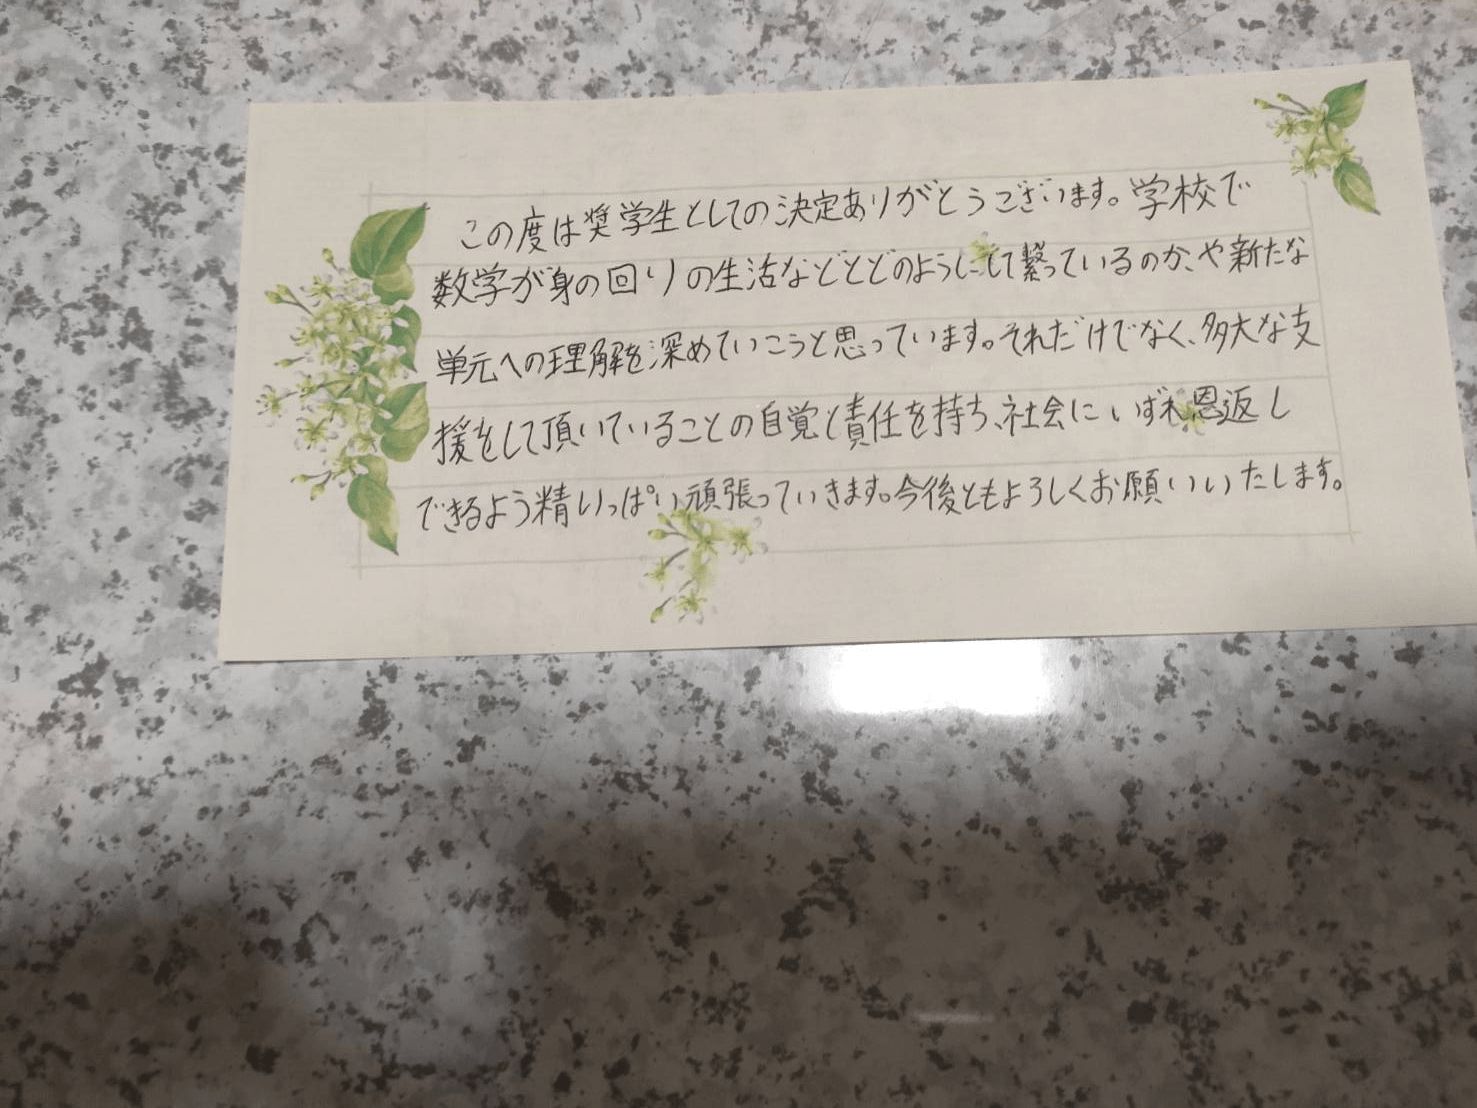 この度は奨学生としての決定ありがとうございます。学校で
数学が身の回りの生活などとどのようにして繋っているのか、や新たな
単元への理解を深めていこうと思っています。それだけでなく、多大な支
援をして頂いていることの自覚と責任を持ち、社会にいずれ恩返し
できるよう精いっぱい頑張っていきます。今後ともよろしくお願いいたします。